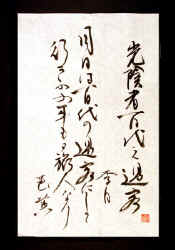 光陰者百代之過客
李白
月日は百代の過客にして
行かふ年も旅人なり
芭蕉